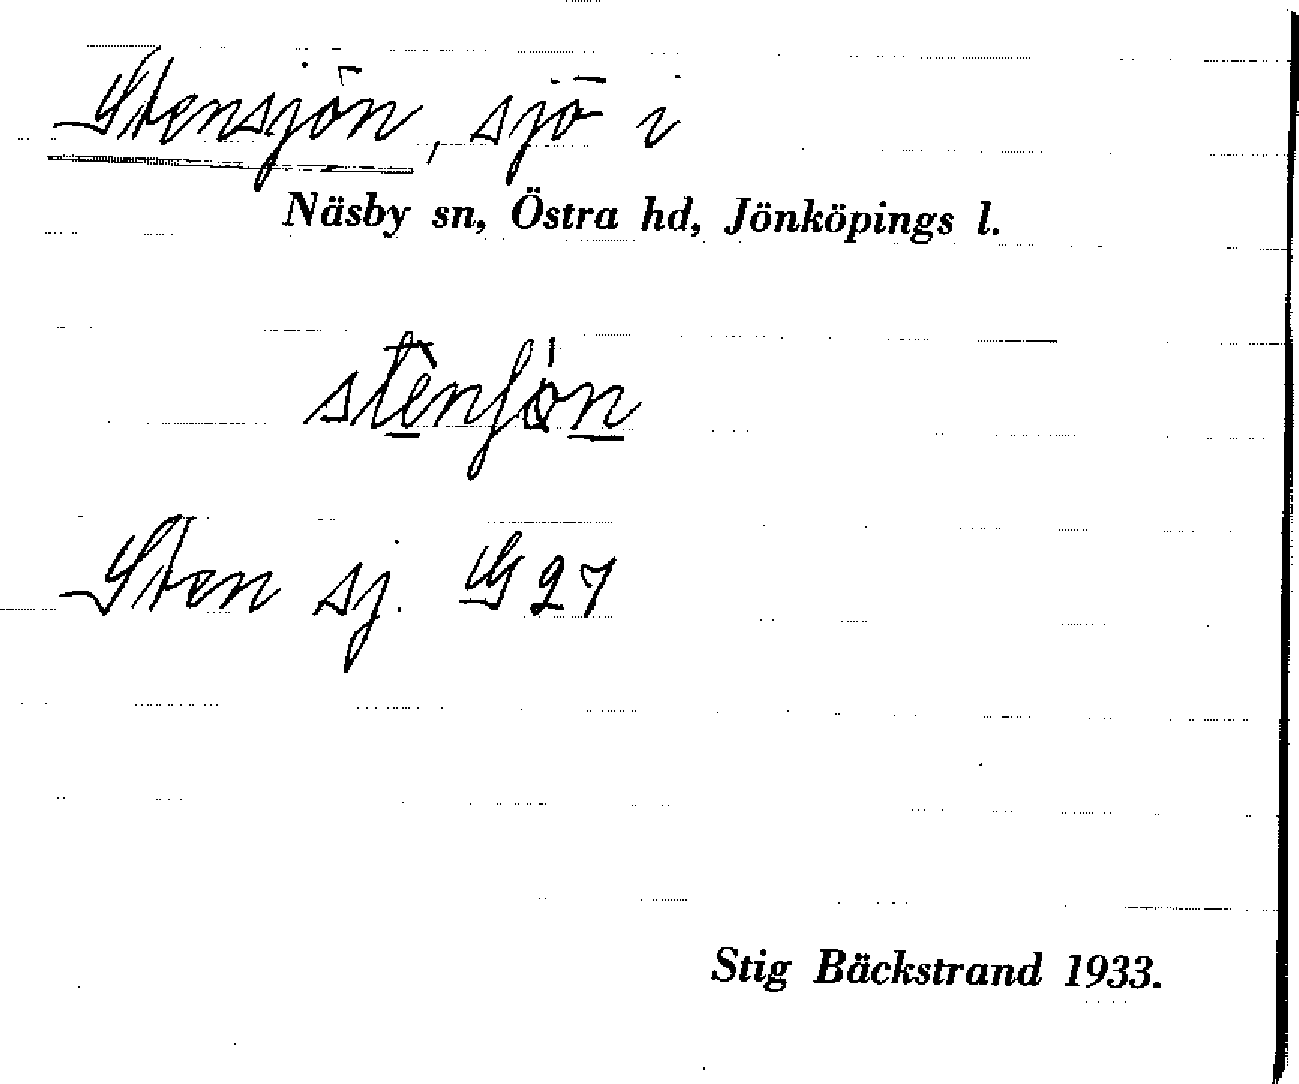 Stensjön, sjö i
Näsby sn, Östra hd, Jönköpings l.
Sten sj. G 27
Stig Bäckstrand 1933.